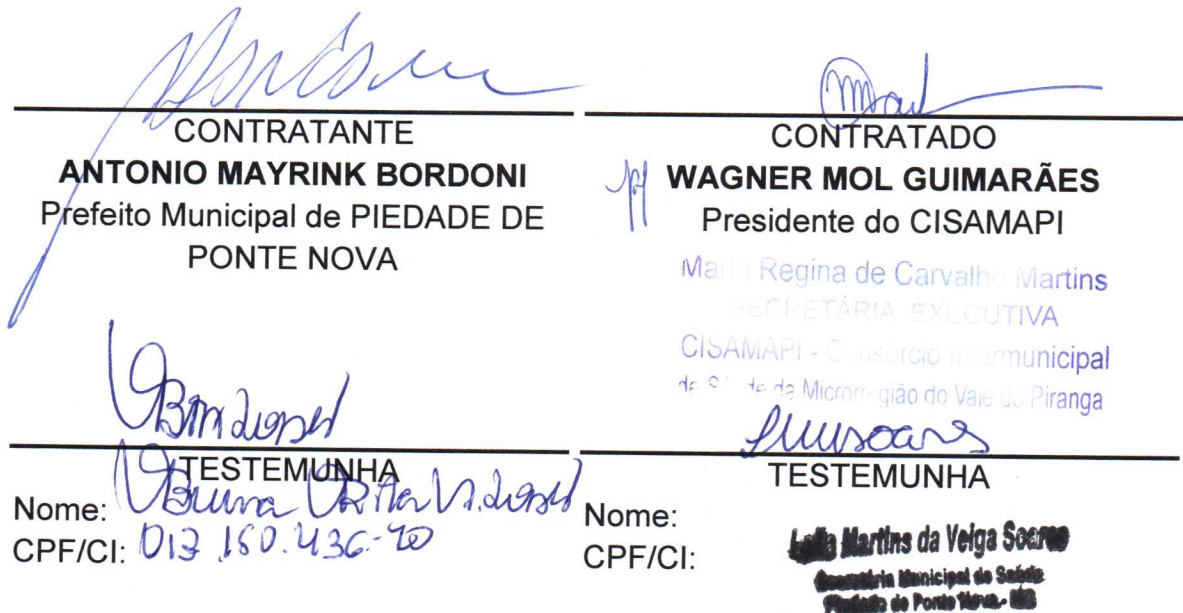 CONTRATANTE
ANTONIO MAYRINK BORDONI
Prefeito Municipal de PIEDADE DE
PONTE NOVA
CONTRATADO
WAGNER MOL GUIMARÃES
Presidente do CISAMAPI
Maria Regina de Carvalho Martins
SECRETÁRIA EXECUTIVA
CISAMAPI - Consórcio Intermunicipal
de Saúde da Microrregião do Vale do Piranga
TESTEMUNHA
Nome: Bruna
CPF/CI:
TESTEMUNHA
Nome:
CPF/CI:
Martins da Veiga Soares
Secretária Municipal de Saúde
Piedade de Ponte Nova - MG